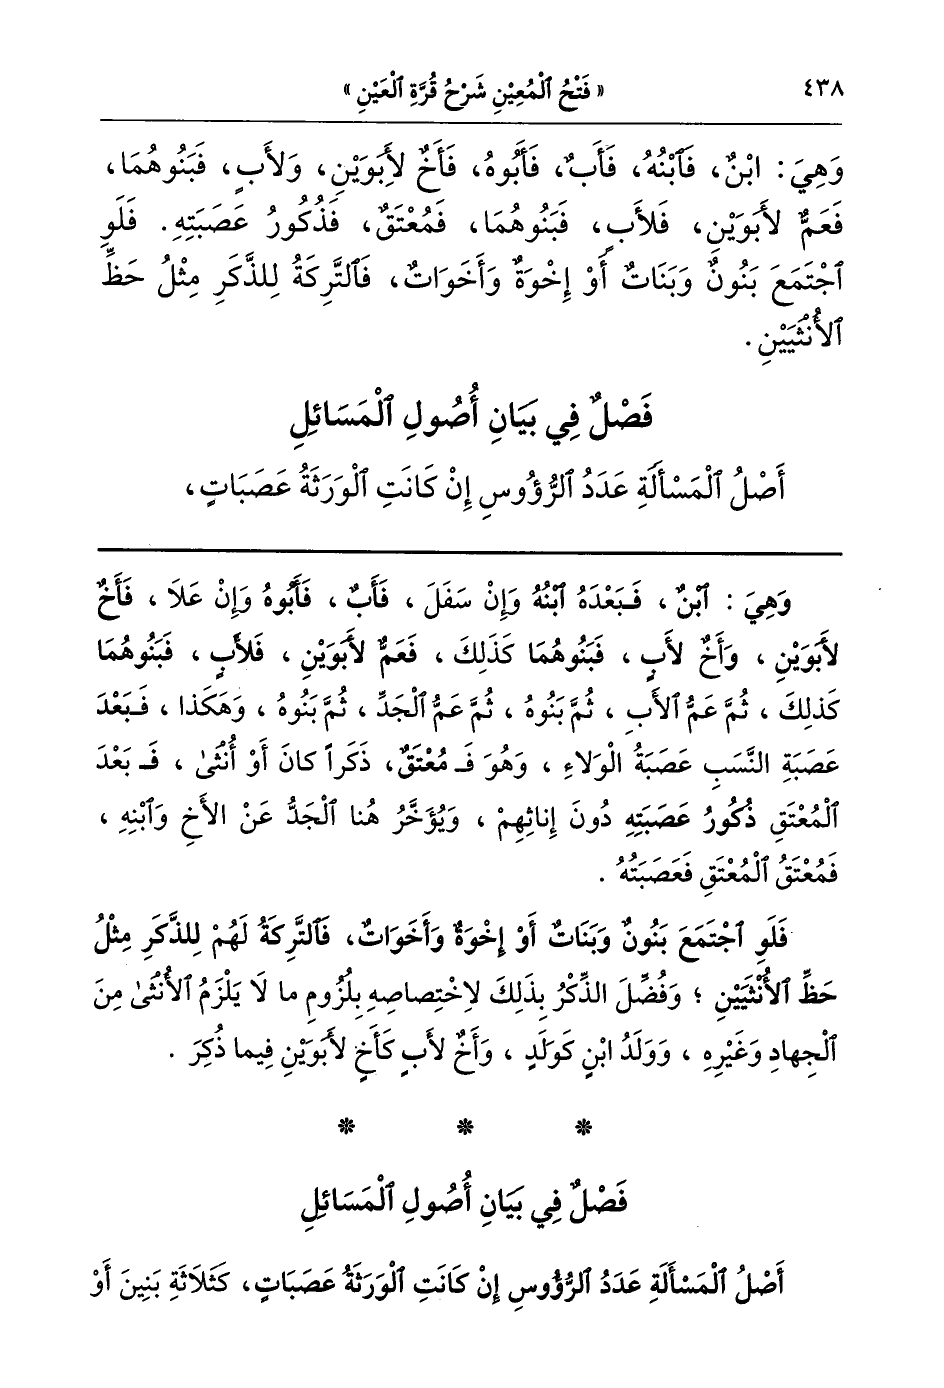 ٤٣٨ « فَتْحُ ٱلْمُعِيْنِ شَرْحُ قُرَّةِ ٱلْعَيْنِ »
وَهِيَ : ابْنٌ، فَٱبْنُهُ، فَأَبٌ، فَأَبُوهُ، فَأَخٌ لأَبَوَيْنِ، وَلأَبٍ، فَبَنُوهُمَا،
فَعَمٌّ لأَبَوَيْنِ، فَلأَبٍ، فَبَنُوهُمَا، فَمُعْتَقٌ، فَذُكُورُ عَصَبَتِهِ. فَلَوِ
ٱجْتَمَعَ بَنُونٌ وَبَنَاتٌ أَوْ إِخْوَةٌ وَأَخَوَاتٌ، فَٱلتَّرِكَةُ لِلذَّكَرِ مِثْلُ حَظِّ
ٱلأُنْثَيَيْنِ .
فَصْلٌ فِي بَيَانِ أُصُولِ ٱلْمَسَائِلِ
أَصْلُ ٱلْمَسْأَلَةِ عَدَدُ ٱلرُّؤُوسِ إِنْ كَانَتِ ٱلْوَرَثَةُ عَصَبَاتٍ،
وَهِيَ : ٱبْنٌ ، فَـبَعْدَهُ ٱبْنُهُ وَإِنْ سَفَلَ ، فَأَبٌ ، فَأَبُوهُ وَإِنْ عَلَا ، فَأَخٌ
لأَبَوَيْنِ ، وَأَخٌ لأَبٍ ، فَبَنُوهُمَا كَذَلِكَ ، فَعَمٌّ لأَبَوَيْنِ ، فَلأَبٍ ، فَبَنُوهُمَا
كَذلِكَ ، ثُمَّ عَمُّ ٱلأَبِ ، ثُمَّ بَنُوهُ ، ثُمَّ عَمُّ ٱلْجَدِّ ، ثُمَّ بَنُوهُ ، وَهَكَذا ، فَـبَعْدَ
عَصَبَةِ النَّسَبِ عَصَبَةُ الْوَلاءِ ، وَهُوَ فَـ مُعْتَقٌ، ذَكَراً كانَ أَوْ أُنْثَىٰ ، فَـ بَعْدَ
ٱلْمُعْتَقِ ذُكُورُ عَصَبَتِهِ دُونَ إِناثِهِمْ ، وَيُؤَخَّرُ هُنا ٱلْجَدُّ عَنْ الأَخِ وَٱبْنِهِ ،
فَمُعْتَقُ ٱلْمُعْتَقِ فَعَصَبَتُهُ .
فَلَوِ ٱجْتَمَعَ بَنُونٌ وَبَنَاتٌ أَوْ إِخْوَةٌ وَأَخَوَاتٌ، فَٱلتَّرِكَةُ لَهُمْ لِلذَّكَرِ مِثْلُ
حَظِّ ٱلأُنْثَيَيْنِ ؛ وَفُضِّلَ الذَّكَرُ بِذَلِكَ لاِخْتِصاصِهِ بِلُزُومِ ما لَا يَلْزَمُ ٱلأُنْثَىٰ مِنَ
ٱلْجِهادِ وَغَيْرِهِ ، وَوَلَدُ ابْنِ كَوَلَدٍ ، وَأَخٌ لأَبٍ كَأَخٍ لأَبَوَيْنِ فِيما ذُكِرَ .
* * *
فَصْلٌ فِي بَيَانِ أُصُولِ ٱلْمَسَائِلِ
أَصْلُ ٱلْمَسْأَلَةِ عَدَدُ ٱلرُّؤُوسِ إِنْ كَانَتِ ٱلْوَرَثَةُ عَصَبَاتٍ، كَثَلَاثَةِ بَنِينَ أَوْ